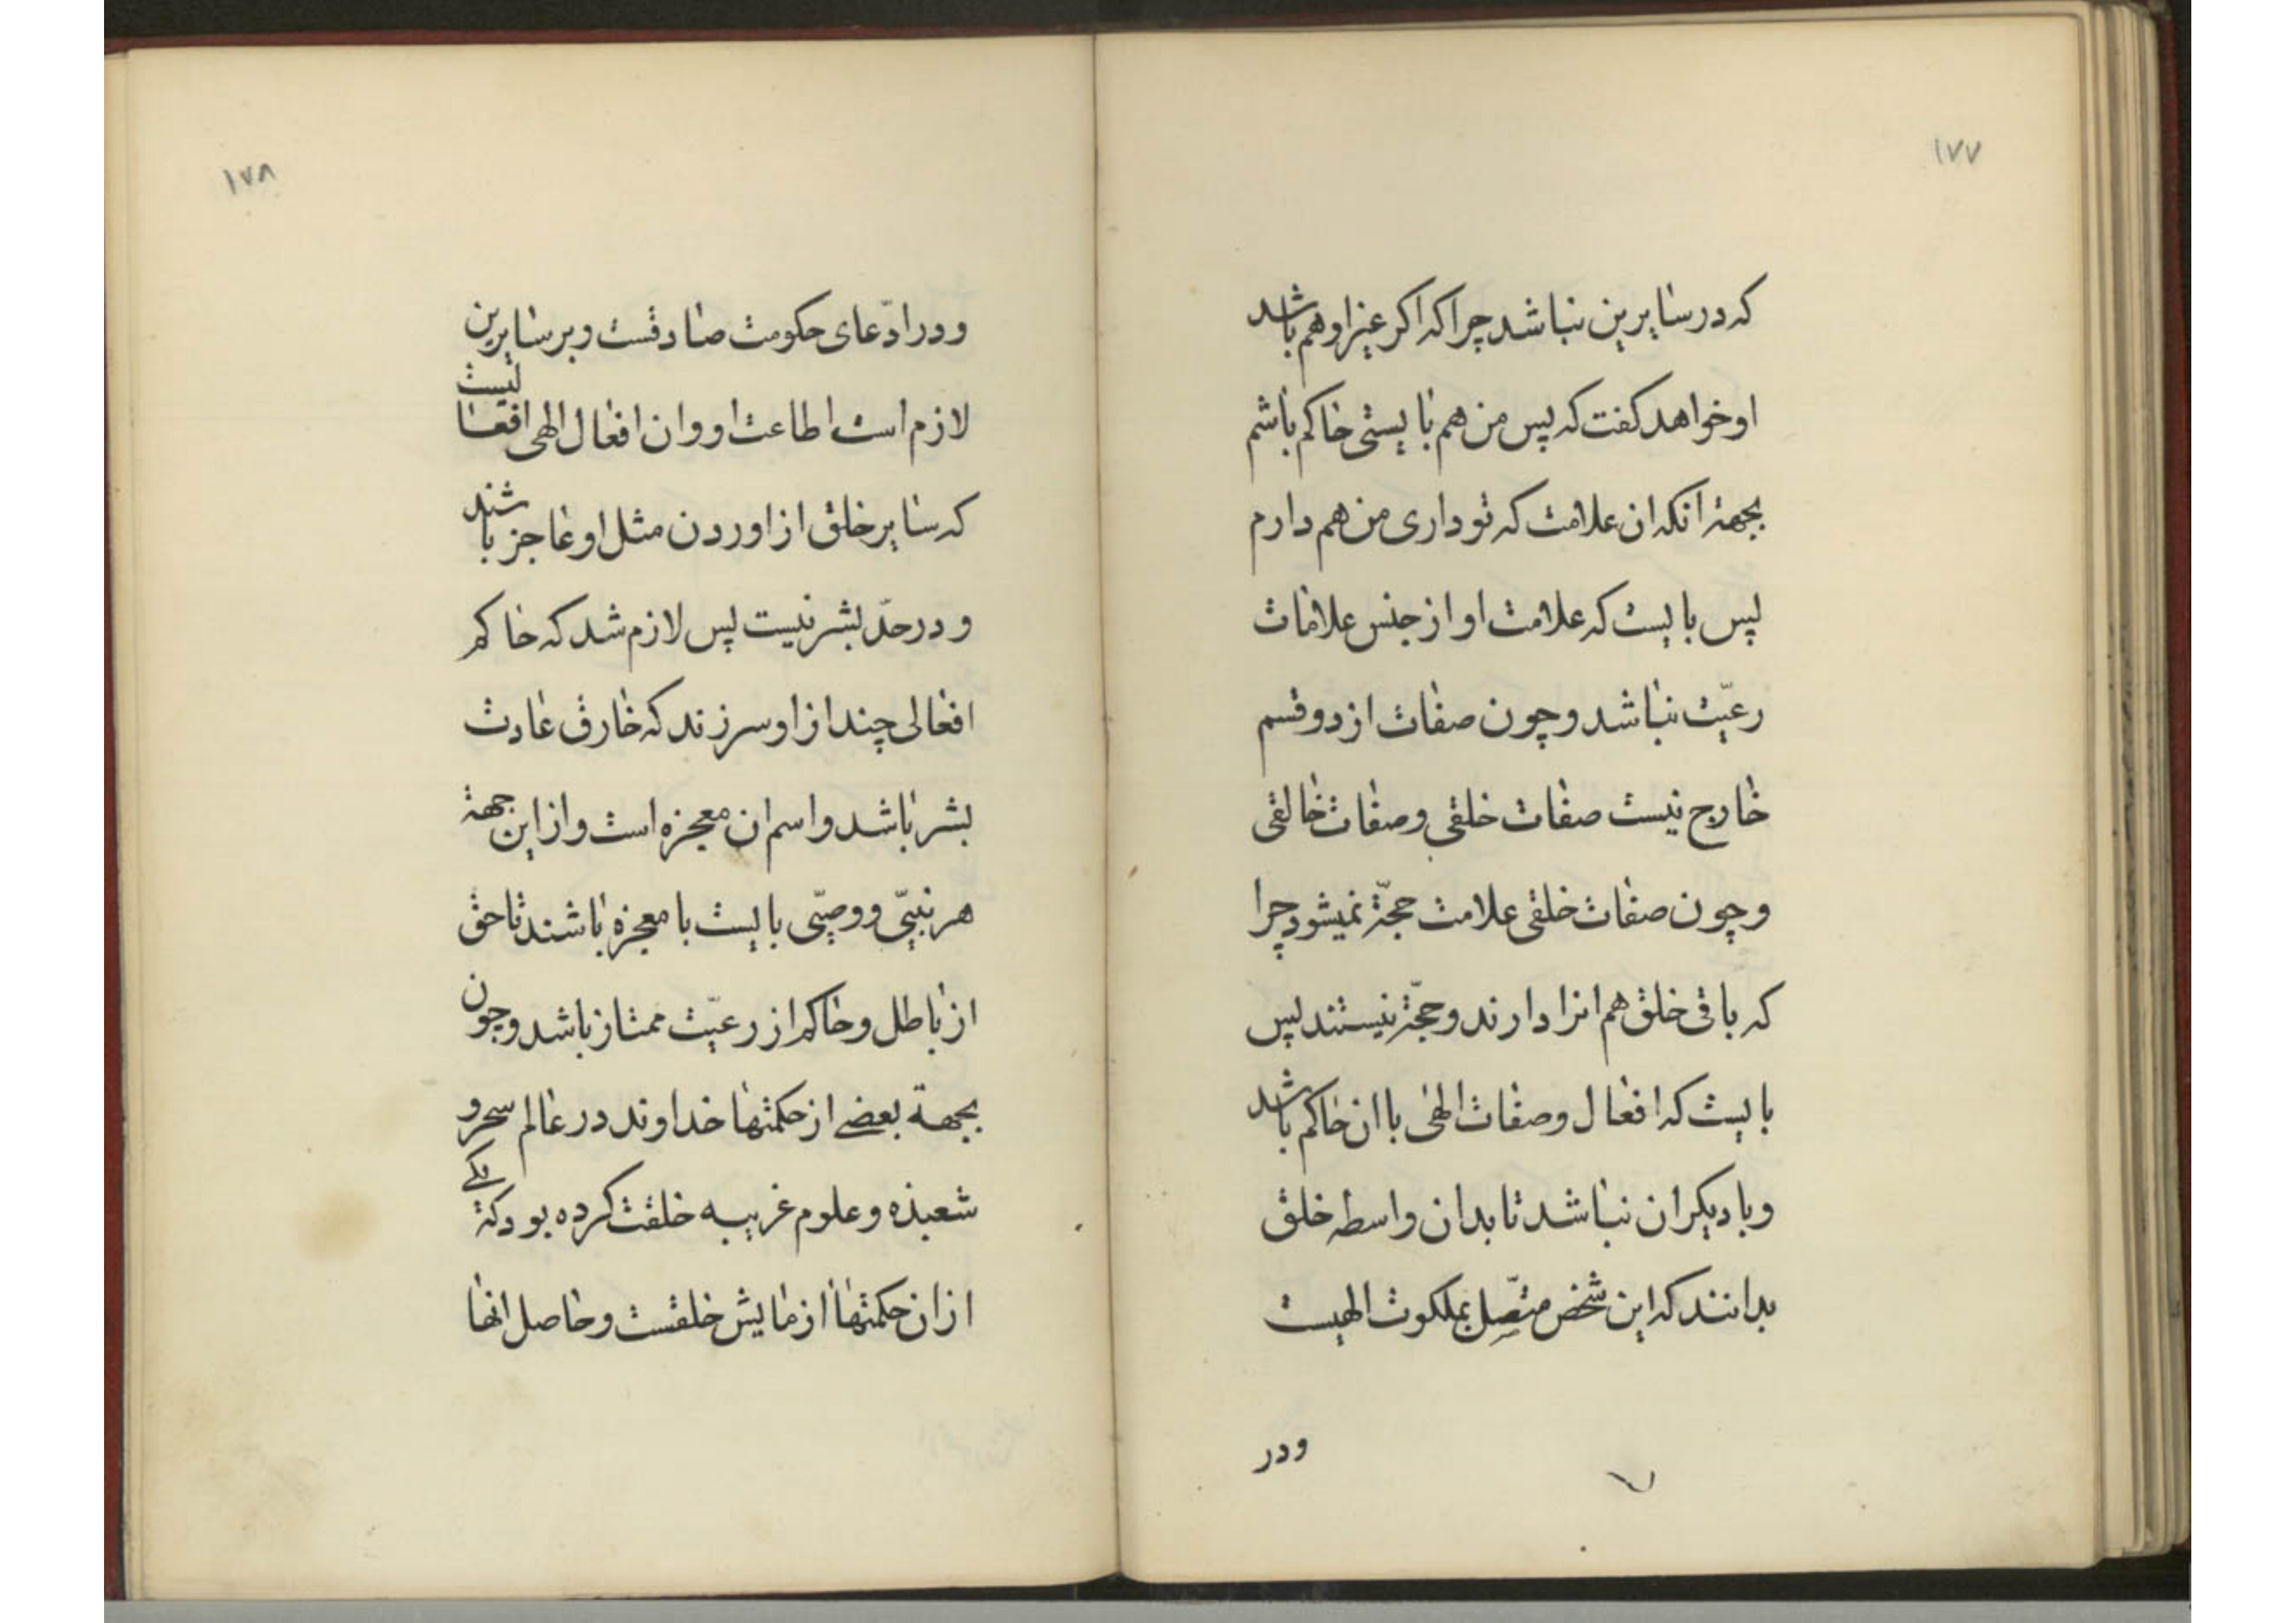 ١٧٧
که در سایرین نباشد چرا که اکر غیر او هم باشد
او خواهد کفت که پس من هم بایستی حاکم باشم
بجهة انکه ان علامت که تو داری من هم دارم
پس بایست که علامت او از جنس علامات
رعیّت نباشد و چون صفات از دو قسم
خارج نیست صفات خلقی و صفات خالقی
و چون صفات خلقی علامت حجّة نمیشود چرا
که باقی خلق هم انرا دارند و حجّة نیستند پس
بایست که افعال و صفات الهی با ان حاکم باشد
و با دیکران نباشد تا بدان واسطه خلق
بدانند که این شخص متّصل بملکوت الهیست
و در
١٧٨
و در ادّعای حکومت صادقست و بر سایرین
لازم است اطاعت او و ان افعال الهی افعالیست
که سایر خلق از اوردن مثل او عاجز باشند
و در حدّ بشر نیست پس لازم شد که حاکم
افعالی چند از او سر زند که خارق عادت
بشر باشد و اسم ان معجزه است و از این جهة
هر نبیّ و وصیّی بایست با معجزه باشند تا حق
از باطل و حاکم از رعیّت ممتاز باشد و چون
بجهة بعضے از حکمتها خداوند در عالم سحر و
شعبذه و علوم غریبه خلقت کرده بود که یکے
از ان حکمتها ازمایش خلقست و حاصل انها